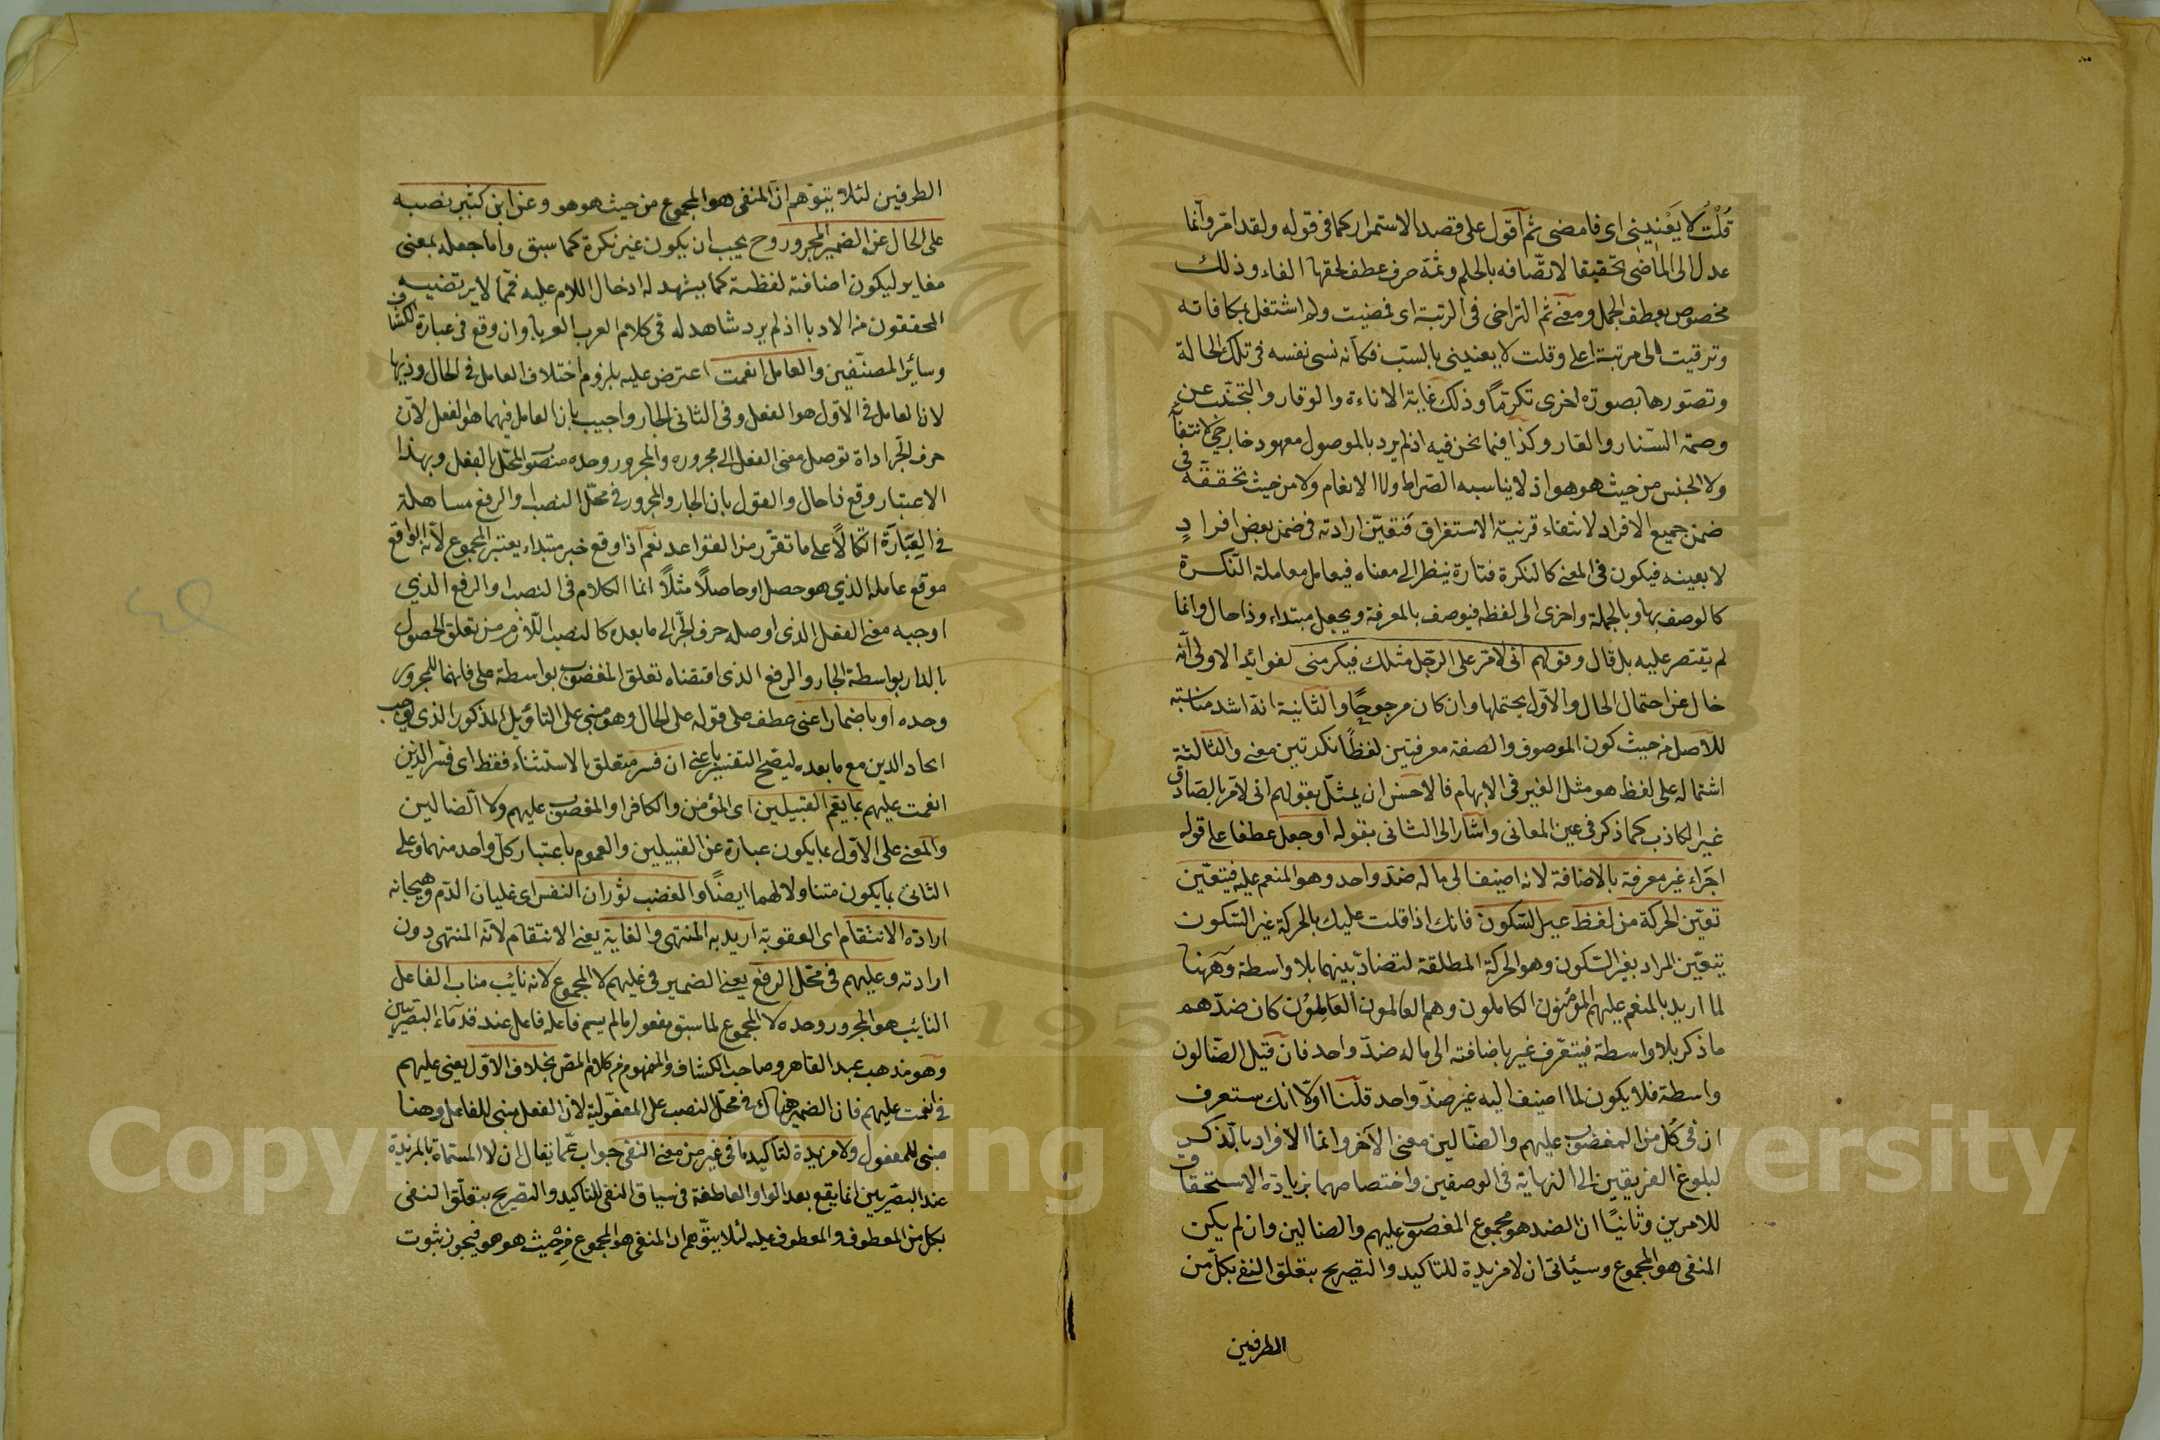 قُلْتُ لا يَعْنِينِى اى فامضى ثم آقول على قصد الاستمرار كما فى قوله ولقد امّر وآنما
عدل الى الماضى تحقيقا لاتصافه بالحلم وثمة حرف عطف لحقها الفاء وذلك
مخصوص بعطف الجمل ومعنى ثم التراخى فى الرتبة اى فمضيت ولم اشتغل بمكافاته
وترقيت الى مرتبة اعلى وقلت لا يعنينى بالسبّ فكأنه نسى نفسه فى تلك الحالة
وتصورها بصورة اخرى تكرمًا وذلك غاية الاناءة والوقار والتجنّب عن
وصمة الشنار والعار وكذا فيما نحن فيه اذ لم يرد بالموصول معهود خارجى لانتفاء
ولا الجنس من حيث هو هو اذ لا يناسبه الصراط ولا الانعام ولا من حيث تحققه فى
ضمن جميع الافراد لانتفاء قرينة الاستغراق فتعيّن ارادته فى ضمن بعض افرادٍ
لا بعينه فيكون فى المعنى كالنكرة فتارة ينظر الى معناه فيعامل معاملة النكرة
كالوصف بها وبالجملة واخرى الى لفظه فيوصف بالمعرفة ويجعل مبتداء وذا حال وانما
لم يقتصر عليه بل قال وقولهم انى لامر على الرجل مثلك فيكرمنى لفوائد الاولى أنه
خال عن احتمال الحال والأول يحتملها وان كان مرجوحًا والثانية انه اشد مناسبة
للأصل من حيث كون الموصوف والصفة معرفتين لفظًا نكرتين معنى والثالثة
اشتماله على لفظ هو مثل الغير فى الابهام فالاحسن ان يمثّل بقولهم انى لامرّ بالصادق
غير الكاذب كما ذكر فى عين المعانى وأشار الى الثانى بقوله اوجعل عطفا على قوله
اجراء غير معرفة بالاضافة لانه اضيف الى ما له ضد واحد وهو المنعم عليه فيتعيّن
تعيّن الحركة من لفظ غير السكون فانك اذا قلت عليك بالحركة غير السكون
يتعيّن المراد بغير السكون وهو الحركة المطلقة لتضادّ بينهما بلا واسطة وههنا
لما اريد بالمنعم عليهم المؤمنون الكاملون وهم العالمون العاملون كان ضدّهم
ما ذكر بلا واسطة فيتعرّف غير باضافته الى ما له ضدّ واحد فان قيل الضّالون
واسطة فلا يكون لما اضيف اليه غير ضدّ واحد قلنا اوّلا انك ستعرف
ان فى كل من المغضوب عليهم والضّالين معنى الآخر وانما الافراد بالذكر
لبلوغ الفريقين الى النهاية فى الوصفين واختصاصهما بزيادة الاستحقاق
للامرين وثانيًا ان الضد هو مجموع المغضوب عليهم والضالين وان لم يكن
المنفى هو المجموع وسيأتى ان لا مزيدة للتاكيد والتصريح بتعلق النفى بكل من
الطرفين
الطرفين لئلا يتوهم ان المنفى هو المجموع من حيث هو هو وعن ابن كثير نصبه
على الحال عن الضمير المجرور وح يجب ان يكون غير نكرة كما سبق واما جعله بمعنى
مغاير ليكون اضافته لفظية كما يشهد له ادخال اللام عليه فمما لا يرتضيه
المحققون من الادبا اذ لم يرد شاهد له فى كلام العرب العرباء وان وقع فى عبارة الكشاف
وسائر المصنّفين والعامل انعمت اعترض عليه بلزوم اختلاف العامل فى الحال وذيها
لان العامل فى الأوّل هو الفعل وفى الثانى الجار واجيب بان العامل فيهما هو الفعل لأن
حرف الجر اداة توصل معنى الفعل الى مجروره والمجرور وحده منصوب المحل بالفعل وبهذا
الاعتبار وقع ذا حال والقول بان الجار والمجرور فى محل النصب او الرفع مساهلة
فى العبارة اتّكالًا على ما تقرّر من القواعد نعم اذا وقع خبر مبتداء يعتبر المجموع لأنه الواقع
موقع عامله الذي هو حصل او حاصلًا مثلًا انما الكلام فى النصب او الرفع الذي
اوجبه معنى الفعل الذى اوصله حرف الجرّ الى ما بعده كالنصب اللازم من تعلق الحصول
بالدار بواسطة الجار والرفع الذى اقتضاه تعلق المغضوب بواسطة على فانهما للمجرور
وحده او باضمار اعنى عطف على قوله على الحال وهو مبنى على التاويل المذكور الذى يوجب
اتحاد الذين مع ما بعده ليتضح التفسير باعنى ان فسر متعلق بالاستثناء فقط اى فسر الذين
انعمت عليهم بما يعم القبيلين اى المؤمن والكافر او المغضوب عليهم ولا الضالين
والمعنى على الاوّل بما يكون عبارة عن القبيلين والعموم باعتبار كل واحد منهما وعلى
الثانى بما يكون متناولا لهما ايضًا والغضب ثوران النفس اى غليان الدّم وهيجانه
ارادة الانتقام اى العقوبة اريد به المنتهى والغاية يعنى الانتقام لأنه المنتهى دون
ارادته وعليهم فى محل الرفع يعنى الضمير فى عليهم لا المجموع لانه نائب مناب الفاعل
النائب هو المجرور وحده لا المجموع لما سبق مفعول ما لم يسم فاعله فاعل عند قدماء البصريين
وهو مذهب عبد القاهر وصاحب الكشاف والمفهوم من كلام المص بخلاف الاوّل يعنى عليهم
فى انعمت عليهم فان الضمير هناك فى محل النصب على المفعولية لان الفعل مبنى للفاعل وهنا
مبنى للمفعول ولا مزيدة لتاكيد ما فى غير من معنى النفى جواب عمّا يقال ان لا المسماة بالمزيدة
عند البصريين انما يقع بعد الواو العاطفة فى سياق النفى للتاكيد والتصريح بتعلّق النفى
بكل من المعطوف والمعطوف عليه لئلا يتوهم ان المنفى هو المجموع من حيث هو هو فيجوز ثبوت
Copyright © King Saud University
195